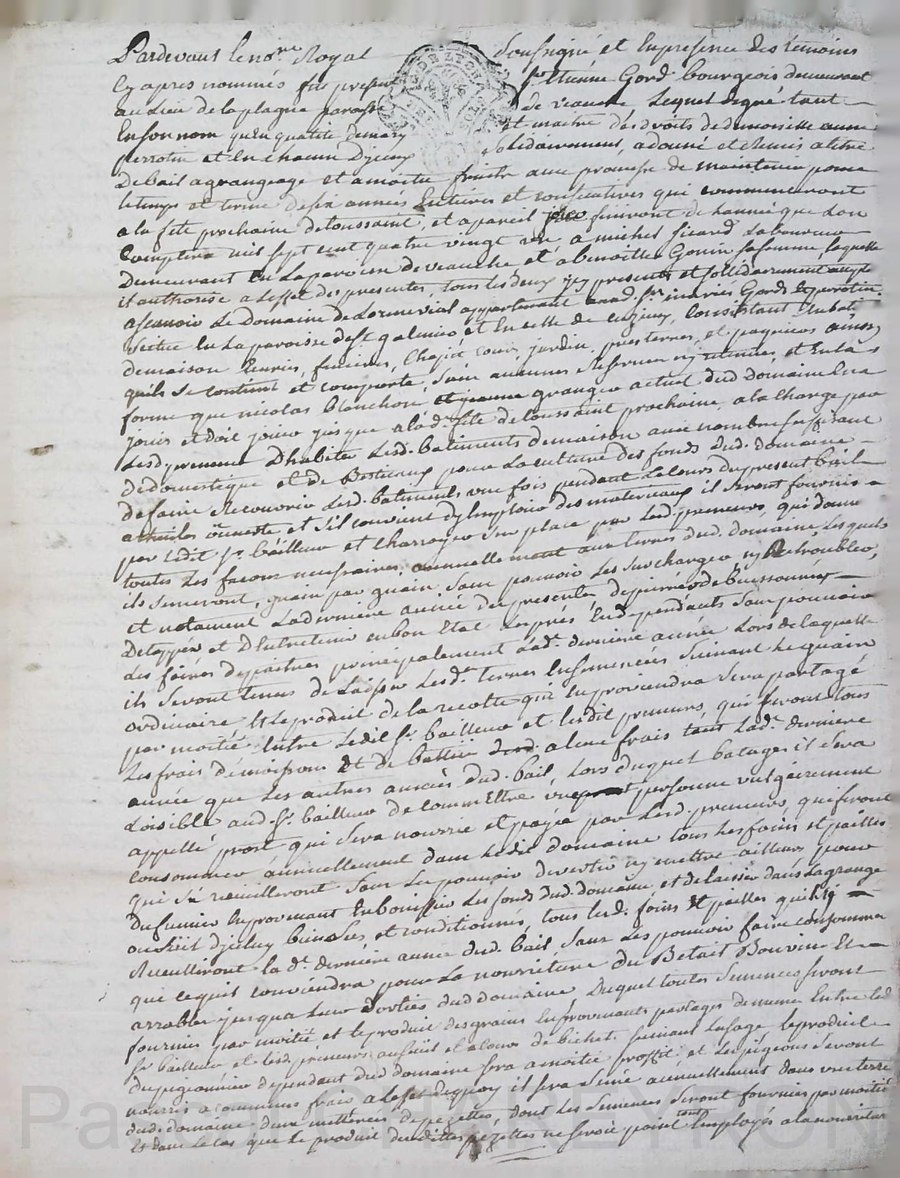 Pardevant le no.re Royal soussigné et En presence des temoins
cy apres nommés fut present s.r Etienne Gord bourgeois demeurant
au Lieu de la plagne paroisse de veauche Lequel de gré tant
En son nom qu'en qualité de mary et maitre des droits de demoiselle anne
perrotin et En chacun Diceux solidairement, a donné et Remis a titre
De bail a grangeage et a moitié fruits avec promesse de maintenir pour
le temps et terme de six années Entieres et consecutives qui commenceront
a la fête prochaine de toussaint, et a pareil jour finiront de L'année que L'on
Comptera mil sept cent quatre vingt à michel sicard Laboureur
Demeurant En La paroisse de veauche et a benoitte Gonin sa femme, laquelle
il authorise a L'effet des presentes, tous les deux icy presents et sollidairement
a scavoir Le Domaine de appartenant aud. s.r mariés Gord et perrotin
scitué En La paroisse de s.t galmier, et En celle de cuzieu, Consistant En bati
de maison Ecuries, fenieres, Chapit cour, jardin, pres terres, et paquiers ainsy
quils se contient et comporte, sans aucunes Reserver ny retenues, et En la
forme que nicolas Blanchon granger actuel dud. domaine En a
jouit et doit jouir jusque a lad. fête de toussaint prochaine, a la charge par
Lesd. preneurs D'habiter Lesd. batiments de maison avec nombre suffisant
de domestique et de Bestiaux pour La culture des fonds dud. domaine
de faire Recouvrir Lesd. batiments une fois pendant Le cours du present bail
a thuiles ouverte et s'il convient dy Employer des materiaux il seront fournis
par Ledit s.r bailleur et Charroyés sur place par Lesd. preneurs, qui donne
toutes Les façons necessaires, annuellement aux terres dud. domaine Lesquels
ils semeront, guain par guain, sans pouvoir Les surcharger ny Retroubler,
et notament La derniere année du presents
De tapper et D'Entretenir en bon Etat les prés En dependants sans pouvoir
Les faires dépaitres principalement Lad. derniere année Lors de laquelle
ils seront tenus de Laisser Lesd. terres Ensemencées suivant Le guain
ordinaire Et Le produit de la recolte qui En proviendra sera partagé
par moitié Entre Ledit s.r bailleur et lesdit preneurs, qui feront tous
Les frais de moissons Et de battre a leur frais tant Lad. derniere
année que Les autres années dud. bail, Lors duquel batages il sera
Loisible aud. s.r bailleur de Commettre une personne vulgairement
appellé prost qui sera nourrie et payée par Lesd. preneurs, qui feront
consommer annuellement dans Ledit domaine tous Les foins et pailles
qui s'y receuilleront sans Le pouvoir divertir ny mettre ailleurs pour
Du fumier En provenant En bonifier Les fonds dud. domaine, et de laisser dans La grange
ou fenil D'icelluy bien sec et conditionnés, tous lesd. foins Et pailles quils
Receuilliront la d. derniere année dud. bail, sans Les pouvoir faire consommer
que ce quil conviendra pour La nourriture du Betail Bovine Et
arrable jusqu'a Leur sorties dud. domaine, Duquel toutes semences seront
fournies par moitié, et le produit des grains En provenants partagés de meme Entre Led.
s.r bailleur et Lesd. preneurs au suil et a Lour de bichet, suivant Lusage, Le produit
du pigeonnier dependant dud. domaine sera a moitié proffit, et Les pigeons seront
nourris a communs frais a Leffet de quoy il sera semé annuellement dans une terre
dud. domaine dune metterée de pezettes, dont Les semences seront fournies par moitié
Et dans le cas que le produit desdittes pezettes ne seroit point tout Employés a la nourriture